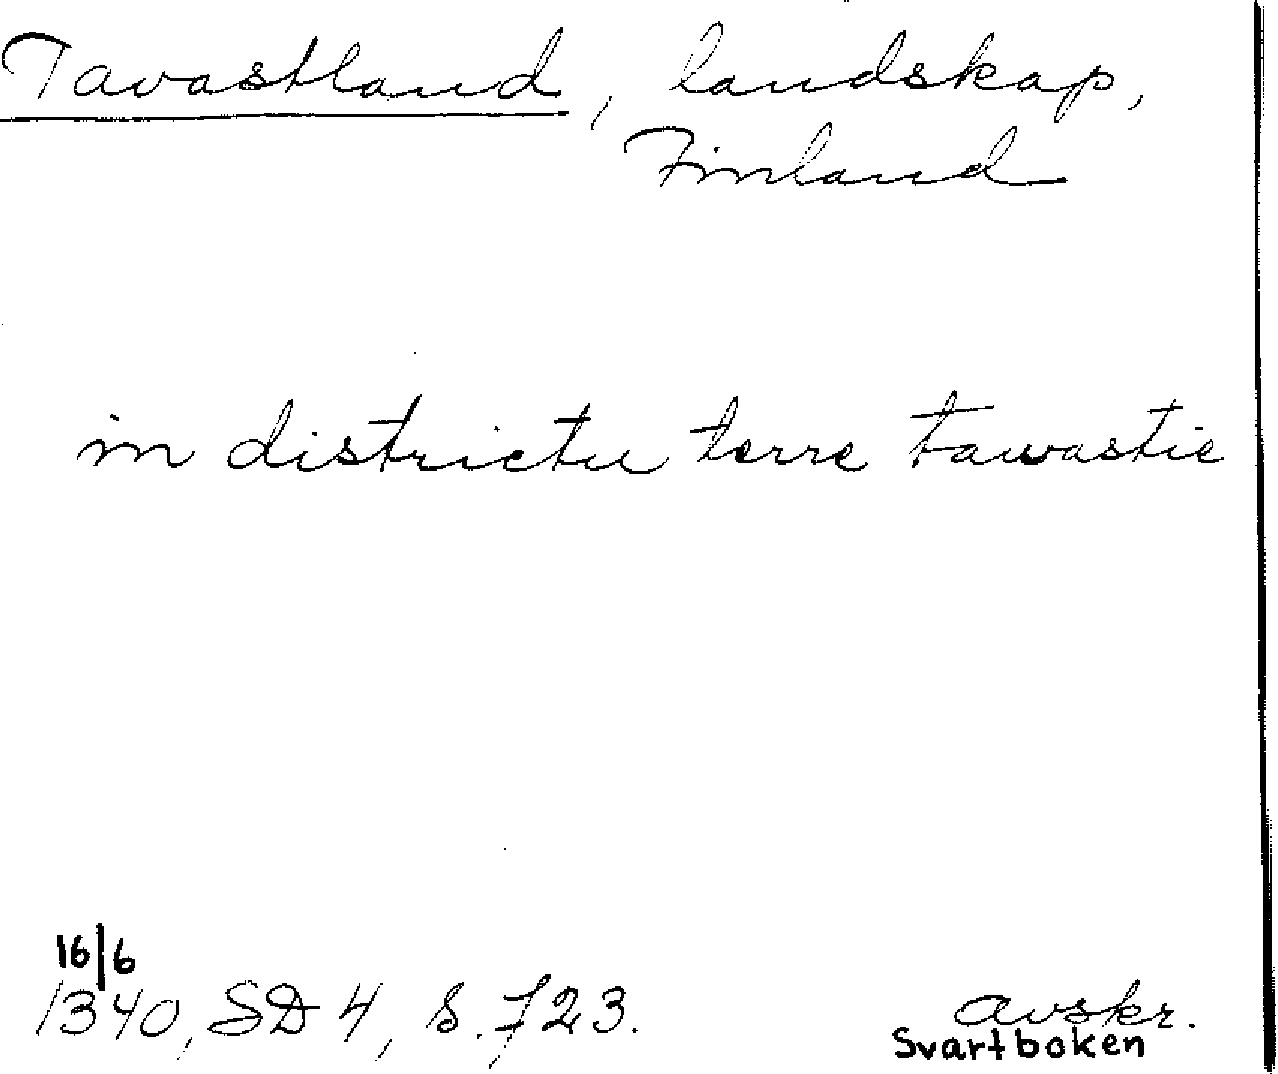 Tavastland, landskap,
Finland
in districtu terre tawastie
16/6
1340, SD 4, s. 723.
avskr.
Svartboken